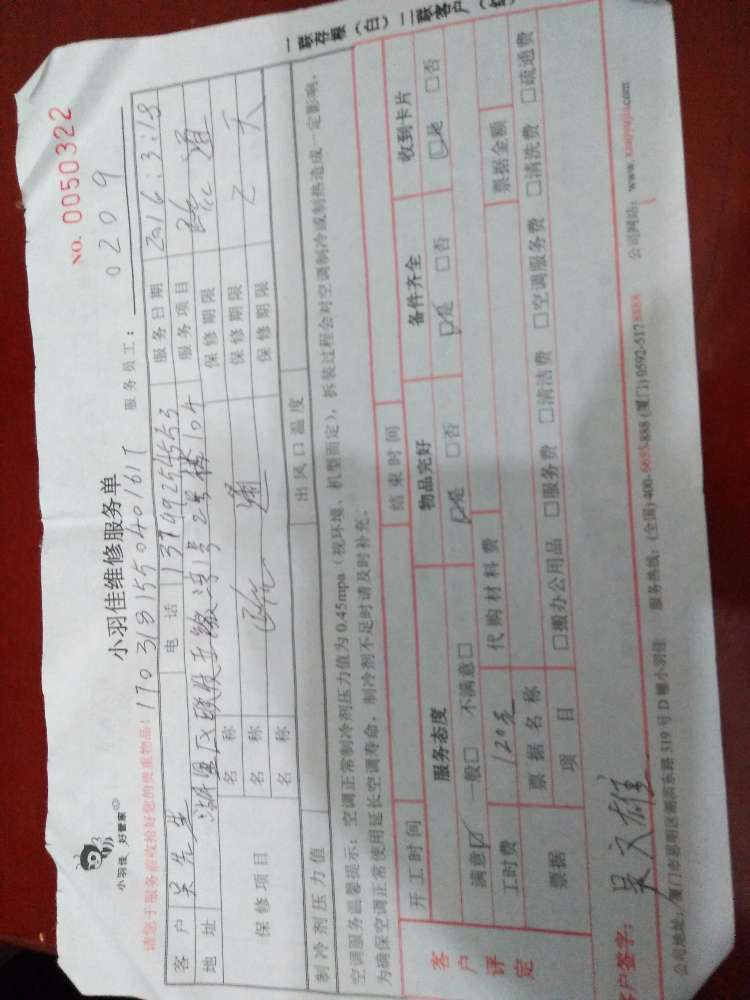 小羽佳 好管家
小羽佳维修服务单
NO. 0050322
请您于服务前收拾好您的贵重物品!
服务员工: 0209
客户 吴先生 电话 服务日期 2016.3.18
地址 服务项目
保修项目 名称 保修期限
名称 疏通 保修期限
名称 保修期限
制冷剂压力值 出风口温度
空调服务温馨提示:空调正常制冷剂压力值为0.45mpa(视环境、机型而定),拆装过程会对空调制冷或制热造成一定影响,
为确保空调正常使用延长空调寿命,制冷剂不足时请及时补充。
开工时间 结束时间
客户评定
服务态度 物品完好 备件齐全 收到卡片
满意☑ 一般□ 不满意□ ☑是 □否 ☑是 □否 ☑是 □否
工时费 120元 代购材料费 票据金额
票据 票据名称 □搬办公用品 □服务费 □清洁费 □空调服务费 □清洗费 □疏通费
项目
户签字: 吴文雄
公司地址:厦门市思明区湖滨东路319号D幢小羽佳 服务热线:(全国)400-6655-888 (厦门)0592-5178888 公司网站:
一联存根(白) 二联客户